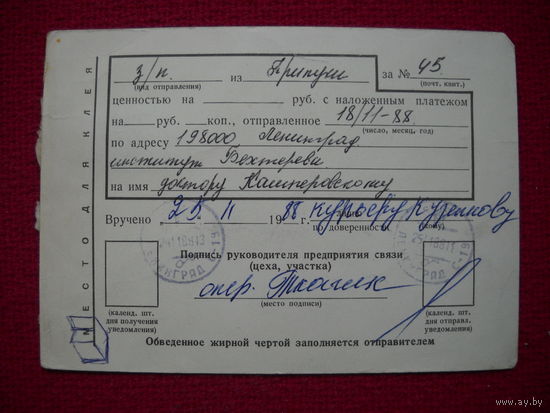 МЕСТО ДЛЯ КЛЕЯ
з/п. из Припуш за № 45.
(вид отправления) (почт. квит.)
ценностью на руб. с наложенным платежом
на руб. коп., отправленное 18/11-88.
(число, месяц, год)
по адресу 198000 Ленинград
институт Бехтерева
на имя доктору Кашперовскому
Вручено 25 11 1988 г. курьеру
по доверенности
Подпись руководителя предприятия связи
(цеха, участка)
опер.
(место подписи)
(календ. шт. дня получения уведомления)
(календ. шт. дня отправл. уведомления)
Обведенное жирной чертой заполняется отправителем
www.ay.by